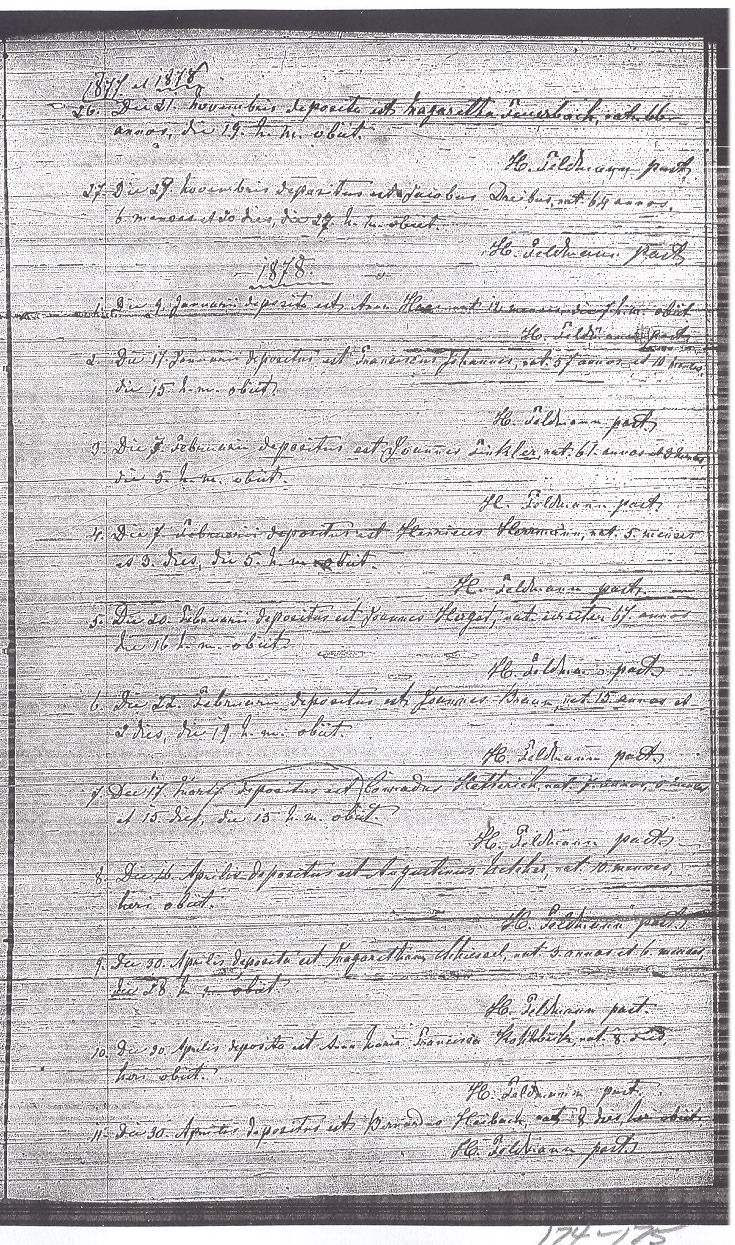 1877 et 1878
26. Die 21. Novembris deposita est Margaretha Feuerbach, nat. 66
annos, die 19. h. m. obiit.
H. Feldmann past.
27. Die 29. Novembris depositus est Jacobus Dreibus, nat. 64 annos,
6 menses et 20 dies, die 27. h. m. obiit.
H. Feldmann past.
1878.
1. Die 9. Januarii deposita est Anna Haas nat. 12 menses, die 7. h. m. obiit
H. Feldmann past.
2. Die 17. Januarii depositus est Franciscus Johannes, nat. 57 annos et 10 menses,
die 15. h. m. obiit.
H. Feldmann past.
3. Die 7. Februarii depositus est Joannes Finkler, nat. 61. annos et menses
die 5. h. m. obiit.
H. Feldmann past.
4. Die 7. Februarii depositus est Henricus Herrmann, nat. 5. menses
et 3. dies, die 5. h. m. obiit.
H. Feldmann past.
5. Die 20. Februarii depositus est Joannes nat. circiter 67. annos
die 16 h. m. obiit.
H. Feldmann past.
6. Die 22. Februarii depositus est Joannes Braun, nat. 15 annos et
2 dies, die 19. h. m. obiit.
H. Feldmann past.
7. Die 17. Martii depositus est Conradus Hetterich, nat. 7. annos, menses
et 15. dies, die 15 h. m. obiit.
H. Feldmann past.
8. Die Aprilis depositus est Augustinus nat. 10. menses,
heri obiit.
H. Feldmann past.
9. Die 30. Aprilis deposita est nat. 3. annos et 6. menses,
die 28. h. m. obiit
H. Feldmann past.
10. Die 30. Aprilis deposita est Anna Maria Francisca nat. 8. dies,
heri obiit.
H. Feldmann past.
11. Die 30. Aprilis depositus est Bernardus Heibach, nat. 8 dies, heri obiit.
H. Feldmann past.
174-175